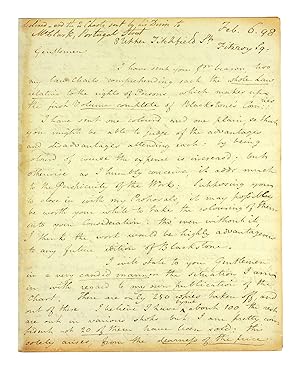 Coloured, and the 2 Charts sent by me down to
Mr Clark, Portugal Street
Feb. 6. 98
8 Upper Titchfield St.
Fitzroy Sq.
Gentlemen
I have sent you for reason two
my Law Charts comprehending each the whole Law
relative to the rights of Persons which makes up
the first Volume complete of Blackstone's Com:
I have sent one colored and one plain so that
you might be able to judge of the advantages
and disadvantages attending each: by being
colored of course the expence is increased; but
otherwise as I humbly conceive, it adds much
to the Perspicuity of the Work. Supposing you
to close in with my Proposals, it may possibly
be worth your while to take the colouring of them
into your consideration: tho even without it
I think the work would be highly advantageous
to any future edition of Blackstone.
I will state to you Gentlemen
in a very candid manner the situation I am
in with regard to my own publication of the
Chart. There are only 250 copies taken off, and
out of these I believe I have about 100 the rest
are out in various shops but I am pretty con-
fident not 20 of them have been sold; this
solely arises from the dearness of the price: